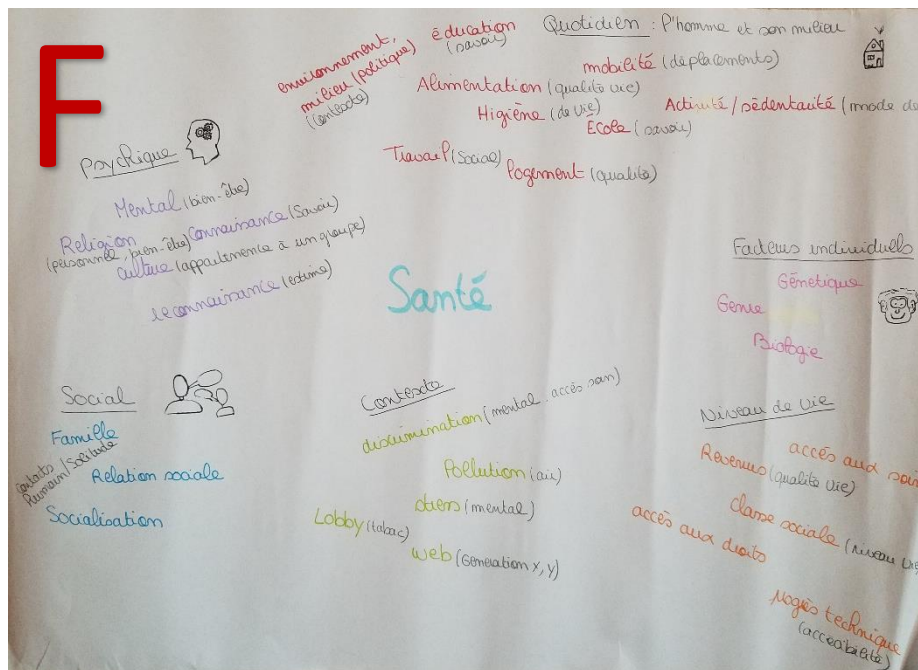 F
Quotidien : l'homme et son milieu
éducation
(savoir)
environnement,
milieu (politique)
(contexte)
mobilité (déplacements)
Alimentation (qualité vie)
Higiène (de vie)
Activité / sédentarité (mode de
École (savoir)
Travail (Social)
logement (qualité)
Psychique
Mental (bien-être)
Religion
(personnel, bien-être)
connaissance (Savoir)
culture (appartenence à un groupe)
reconnaissance (estime)
Santé
Facteurs individuels
Génétique
Genre
Biologie
Social
Famille
contacts
Humain / Solitude
Relation sociale
Socialisation
Contexte
discrimination (mental, accès soin)
Pollution (air)
stress (mental)
Lobby (tabac)
web (Generation x, y)
Niveau de vie
accès aux soin
Revenus (qualité vie)
classe sociale (niveau vie
accès aux droits
progrès technique
(accessibilité)